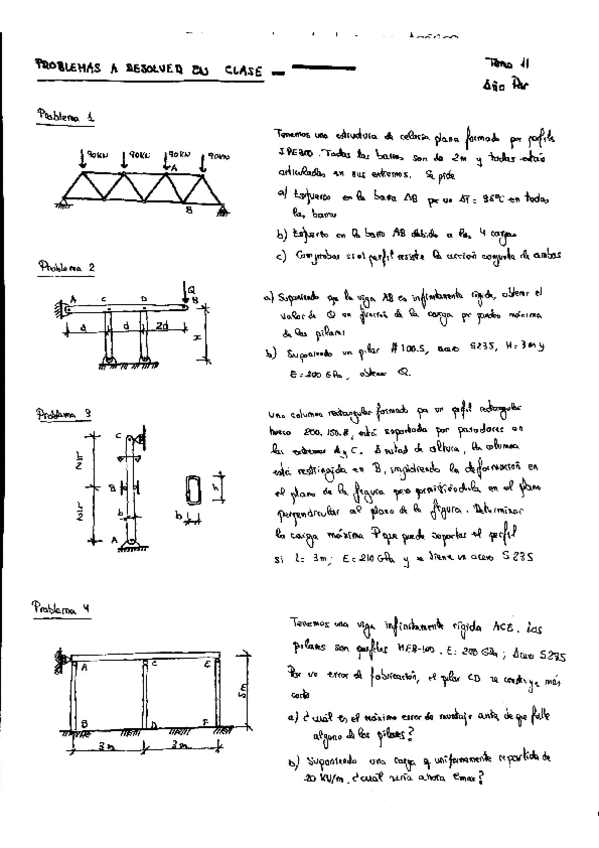 PROBLEMAS A RESOLVER EN CLASE
Tema 11
Año Par
Problema 1
90KN 90KN 90KN 90KN
A
B
Tenemos una estructura de celosía plana formada por perfiles
IPE200. Todas las barras son de 2m y todas están
articuladas en sus extremos. Se pide
a) Esfuerzo en la barra AB por un ΔT = 35ºC en todas
las barras
b) Esfuerzo en la barra AB debido a las 4 cargas
c) Comprobar si el perfil resiste la acción conjunta de ambas
Problema 2
Q
A C D B
d d 2d
H
a) Suponiendo que la viga AB es infinitamente rígida, obtener el
valor de Q en función de la carga por pandeo máxima
de los pilares
b) Suponiendo un pilar #100.5, acero S235, H=3m y
E=200 GPa, obtener Q.
Problema 3
C
L/2
B
L/2
b
A
h
b
Una columna rectangular formada por un perfil rectangular
hueco 200.150.8, está soportada por pasadores en
los extremos A y C. A mitad de altura, la columna
está restringida en B, impidiendo la deformación en
el plano de la figura pero permitiéndola en el plano
perpendicular al plano de la figura. Determinar
la carga máxima P que puede soportar el perfil
si L= 3m; E=210 GPa y se tiene un acero S235
Problema 4
A C E
5m
B D F
3m 3m
Tenemos una viga infinitamente rígida ACE. Los
pilares son perfiles HEB-100. E: 200 GPa; Acero S235
Por un error de fabricación, el pilar CD se construye más
corto
a) ¿cuál es el máximo error de montaje antes de que falle
alguno de los pilares?
b) Suponiendo una carga q uniformemente repartida de
20 KN/m. ¿cuál sería ahora emax?